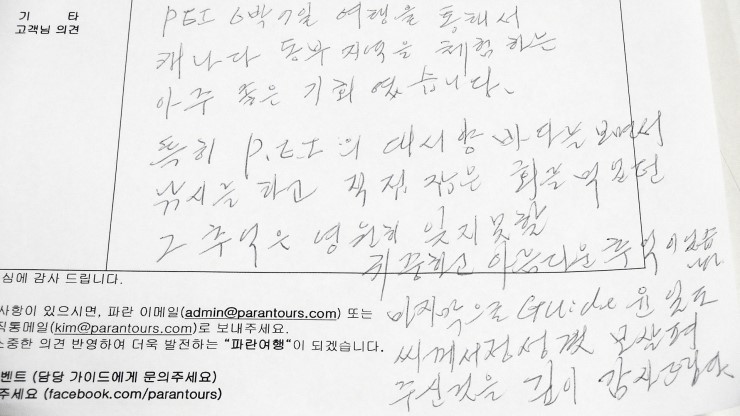 기 타
고객님 의견
PEI 6박7일 여행을 통해서
캐나다 동부 지역을 체험하는
아주 좋은 기회 였습니다.
특히 P.E.I의 대서양 바다를 보면서
낚시를 하고 직접 잡은 회를 먹으면
그 추억은 영원히 잊지못할
귀중하고 아름다운 추억이었습니다
심에 감사 드립니다.
사항이 있으시면, 파란 이메일(admin@parantours.com) 또는
직통메일(kim@parantours.com)로 보내주세요.
소중한 의견 반영하여 더욱 발전하는 "파란여행"이 되겠습니다.
벤트 (담당 가이드에게 문의주세요)
주세요 (facebook.com/parantours)
마지막으로 Guide 윤일도
씨께서 정성껏 보살펴
주신것을 깊이 감사드립니다